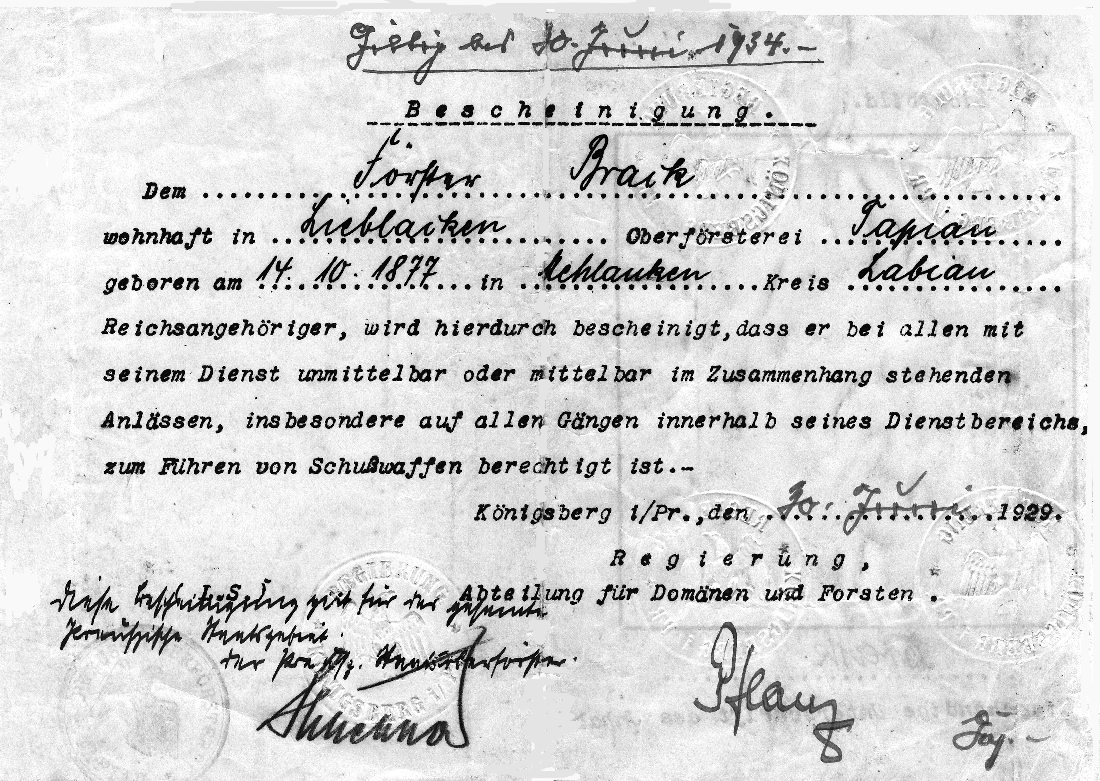 Gültig bis 30. Juni 1934.-
Bescheinigung.
Dem Förster Braik
wohnhaft in Lieblacken Oberförsterei Tapiau
geboren am 14. 10. 1877 in Mehlauken Kreis Labiau
Reichsangehöriger, wird hierdurch bescheinigt,dass er bei allen mit
seinem Dienst unmittelbar oder mittelbar im Zusammenhang stehenden
Anlässen, insbesondere auf allen Gängen innerhalb seines Dienstbereichs,
zum Führen von Schußwaffen berechtigt ist.-
Königsberg i/Pr.,den 30. Juni 1929.
Regierung,
Abteilung für Domänen und Forsten .
L.S.
Diese Bescheinigung gilt für das gesamte
Preußische Staatsgebiet.
der Preuß. Staatsoberförster.
Pflanz